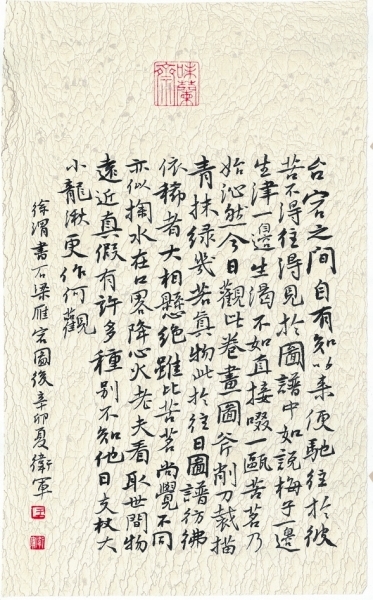 味蘭齋
台宕之间自有知以来便馳往於彼
苦不得往得見於圖譜中如説梅子一邊
生津一邊生渴不如直接啜一甌苦茗乃
始沁然今日觀此卷畫一圖斧削刀裁描
青抹緑幾若真物此於往日圖譜彷彿
依稀者大相懸絶雖比苦茗尚覺不同
亦似掬水在口畧降心火老夫看取世間物
遠近真假有許多種别不知他日支杖大
小龍湫更作何觀
徐渭書石梁雁宕圖後辛卯夏衛軍